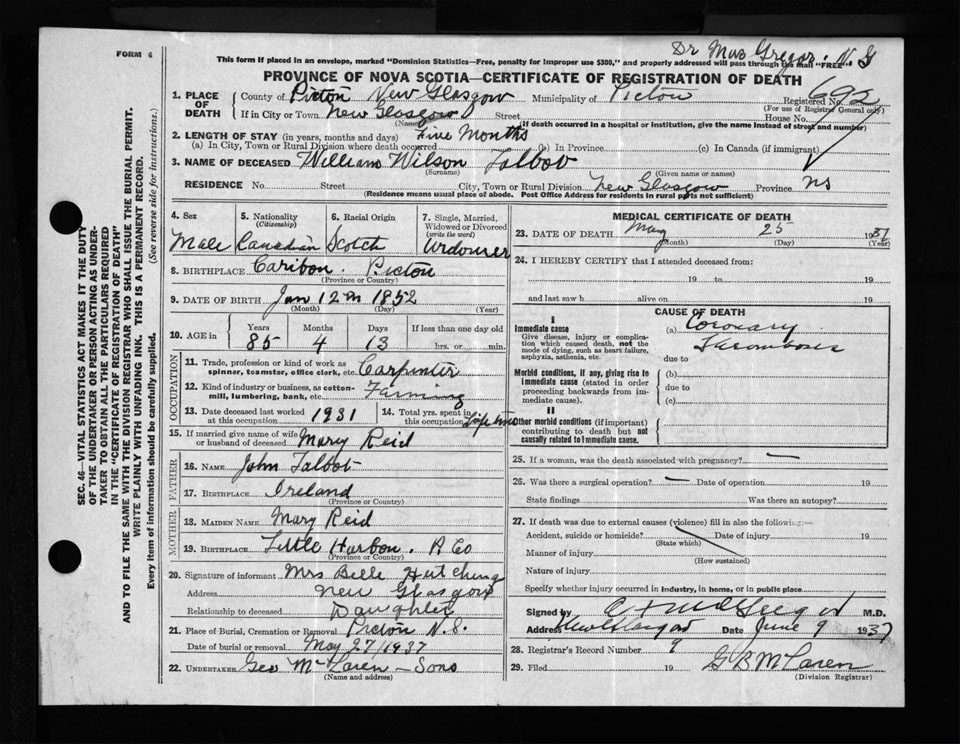 FORM 6
Dr Mac Gregor, N. G
This form if placed in an envelope, marked "Dominion Statistics—Free, penalty for improper use $300," and properly addressed will pass through the mail "FREE"
PROVINCE OF NOVA SCOTIA—CERTIFICATE OF REGISTRATION OF DEATH
SEC. 46—VITAL STATISTICS ACT MAKES IT THE DUTY
OF THE UNDERTAKER OR PERSON ACTING AS UNDER-
TAKER TO OBTAIN ALL THE PARTICULARS REQUIRED
IN THE "CERTIFICATE OF REGISTRATION OF DEATH"
AND TO FILE THE SAME WITH THE DIVISION REGISTRAR WHO SHALL ISSUE THE BURIAL PERMIT.
WRITE PLAINLY WITH UNFADING INK. THIS IS A PERMANENT RECORD.
Every item of information should be carefully supplied. (See reverse side for instructions.)
1. PLACE OF DEATH County of Pictou New Glasgow Municipality of Pictou Registered No. 692
(For use of Registrar General only)
If in City or Town New Glasgow Street House No.
(Name) (If death occurred in a hospital or institution, give the name instead of street and number)
2. LENGTH OF STAY (in years, months and days) Five Months
(a) In City, Town or Rural Division where death occurred (b) In Province (c) In Canada (if immigrant)
3. NAME OF DECEASED William Wilson Talbot
(Surname) (Given name or names)
RESIDENCE No. Street City, Town or Rural Division New Glasgow Province NS
(Residence means usual place of abode. Post Office Address for residents in rural parts not sufficient)
4. Sex 5. Nationality (Citizenship) 6. Racial Origin 7. Single, Married, Widowed or Divorced (write the word)
Male Canadian Scotch Widower
8. BIRTHPLACE Caribou. Pictou
(Province or Country)
9. DATE OF BIRTH Jan 12th 1852
(Month) (Day) (Year)
10. AGE in Years Months Days If less than one day old
85 4 13 hrs. or min.
OCCUPATION
11. Trade, profession or kind of work as spinner, teamster, office clerk, etc. Carpenter
12. Kind of industry or business, as cotton-mill, lumbering, bank, etc. Farming
13. Date deceased last worked at this occupation 1931 14. Total yrs. spent in this occupation Life time
15. If married give name of wife or husband of deceased Mary Reid
FATHER
16. NAME John Talbot
17. BIRTHPLACE Ireland
(Province or Country)
MOTHER
18. MAIDEN NAME Mary Reid
19. BIRTHPLACE Little Harbou. P Co
(Province or Country)
20. Signature of informant Mrs Belle Hutchings
Address New Glasgow
Relationship to deceased Daughter
21. Place of Burial, Cremation or Removal Pictou N.S.
Date of burial or removal May 27/1937
22. UNDERTAKER Geo McLaren - Sons
(Name and address)
MEDICAL CERTIFICATE OF DEATH
23. DATE OF DEATH May 25 1937
(Month) (Day) (Year)
24. I HEREBY CERTIFY that I attended deceased from:
19 to 19
and last saw h alive on 19
CAUSE OF DEATH
I
Immediate cause (a) Coronary
Give disease, injury or complication which caused death, not the mode of dying, such as heart failure, asphyxia, asthenia, etc. Thrombosis
due to
Morbid conditions, if any, giving rise to immediate cause (stated in order proceeding backwards from immediate cause). (b)
due to
(c)
II
Other morbid conditions (if important) contributing to death but not causally related to immediate cause.
25. If a woman, was the death associated with pregnancy? —
26. Was there a surgical operation? — Date of operation 19
State findings Was there an autopsy?
27. If death was due to external causes (violence) fill in also the following:—
Accident, suicide or homicide? Date of injury 19
(State which)
Manner of injury
(How sustained)
Nature of injury
Specify whether injury occurred in industry, in home, or in public place
Signed by M.D.
Address New Glasgow Date June 9 1937
28. Registrar's Record Number 9
29. Filed 19 G B McLaren
(Division Registrar)